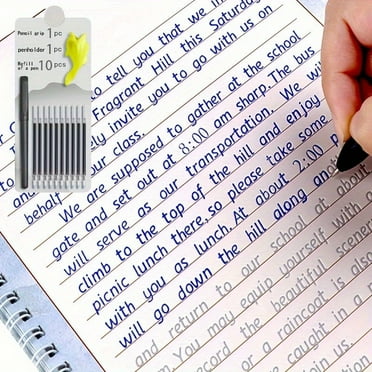 Pencil grip 1 pc
penholder 1 pc
Refill of a pen 10 pcs
to tell you that we
Fragrant Hill this Saturday
invite you to go with us on
behalf our class.
We are supposed to gather at the school
gate and set out at 8:00 am sharp. The bus
will serve as our transportation. We will
climb to the top of the hill and enjoy
picnic lunch there, so please take some
with you as lunch. At about 2:00 p
will go down the hill along an
and return to our school at about
You may equip yourself with a
record the beautiful scener
or a raincoat is also
caught in a
join us.